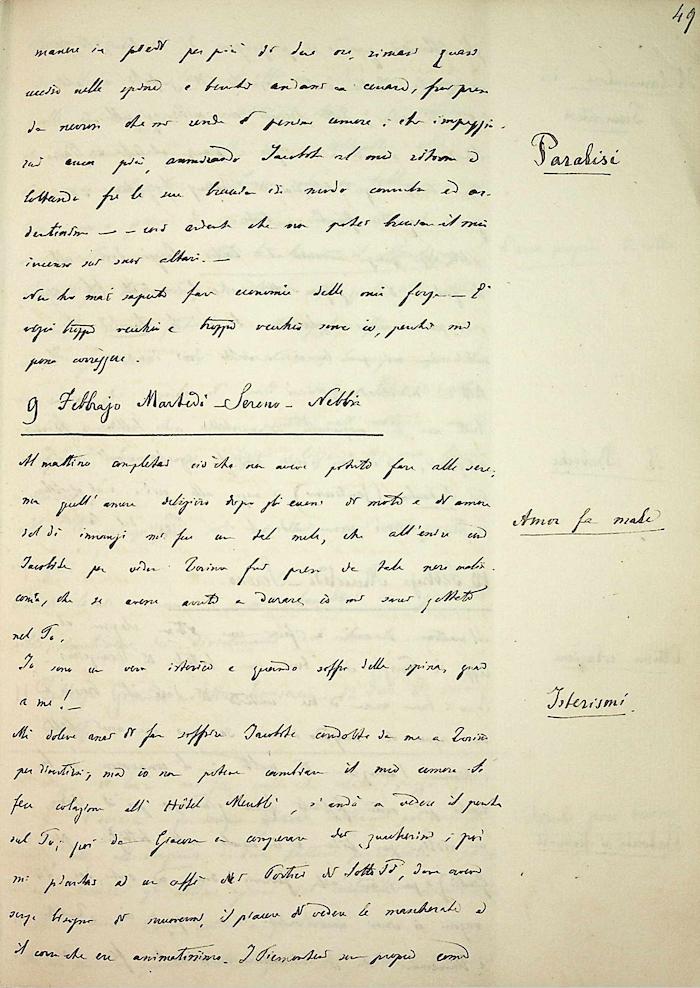 49
manere in piedi per più di due ore, rimasi quasi
ucciso nelle spine e benché andassi a cenare, fui preso
da nevrosi che mi rende di pessimo umore; che
rai ancor più, Jacobità al mio ritorno e
fra le sue braccia in modo ed ar-
dentissimo — così ardente che non potei bruciare il mio
incenso sui suoi altari. —
Non ho mai saputo fare economie delle mie forze — E
oggi troppo vecchio e troppo vecchio sono io, perché mi
possa correggere.
Paralisi
9 Febbrajo Martedì — Sereno — Nebbia
Al mattino completai ciò che non aveva potuto fare alla sera,
ma quell'amore dopo gli eventi di moto e di amore
del dì innanzi mi fece un tal male, che all'
per veder Torino fui preso da tale nera malin-
conia, che se avesse avuto a durare, io mi sarei gettato
nel Po.
Io sono un vero isterico e quando soffro della spina, guai
a me! —
Mi doleva assai di far soffrire condotta da me a Torino
per divertirsi; ma io non potevo cambiare il mio umore. Si
fece colazione all'Hôtel Meublé, s'andò a vedere il ponte
sul Po; poi da a comperare dei zuccherini; poi
mi piantai ad un caffè dei Portici di Sotto Po, dove aveva
senza bisogno di muovermi, il piacere di vedere le mascherate e
il corso che era animatissimo. I Piemontesi son proprio come
Amor fa male
Isterismi.